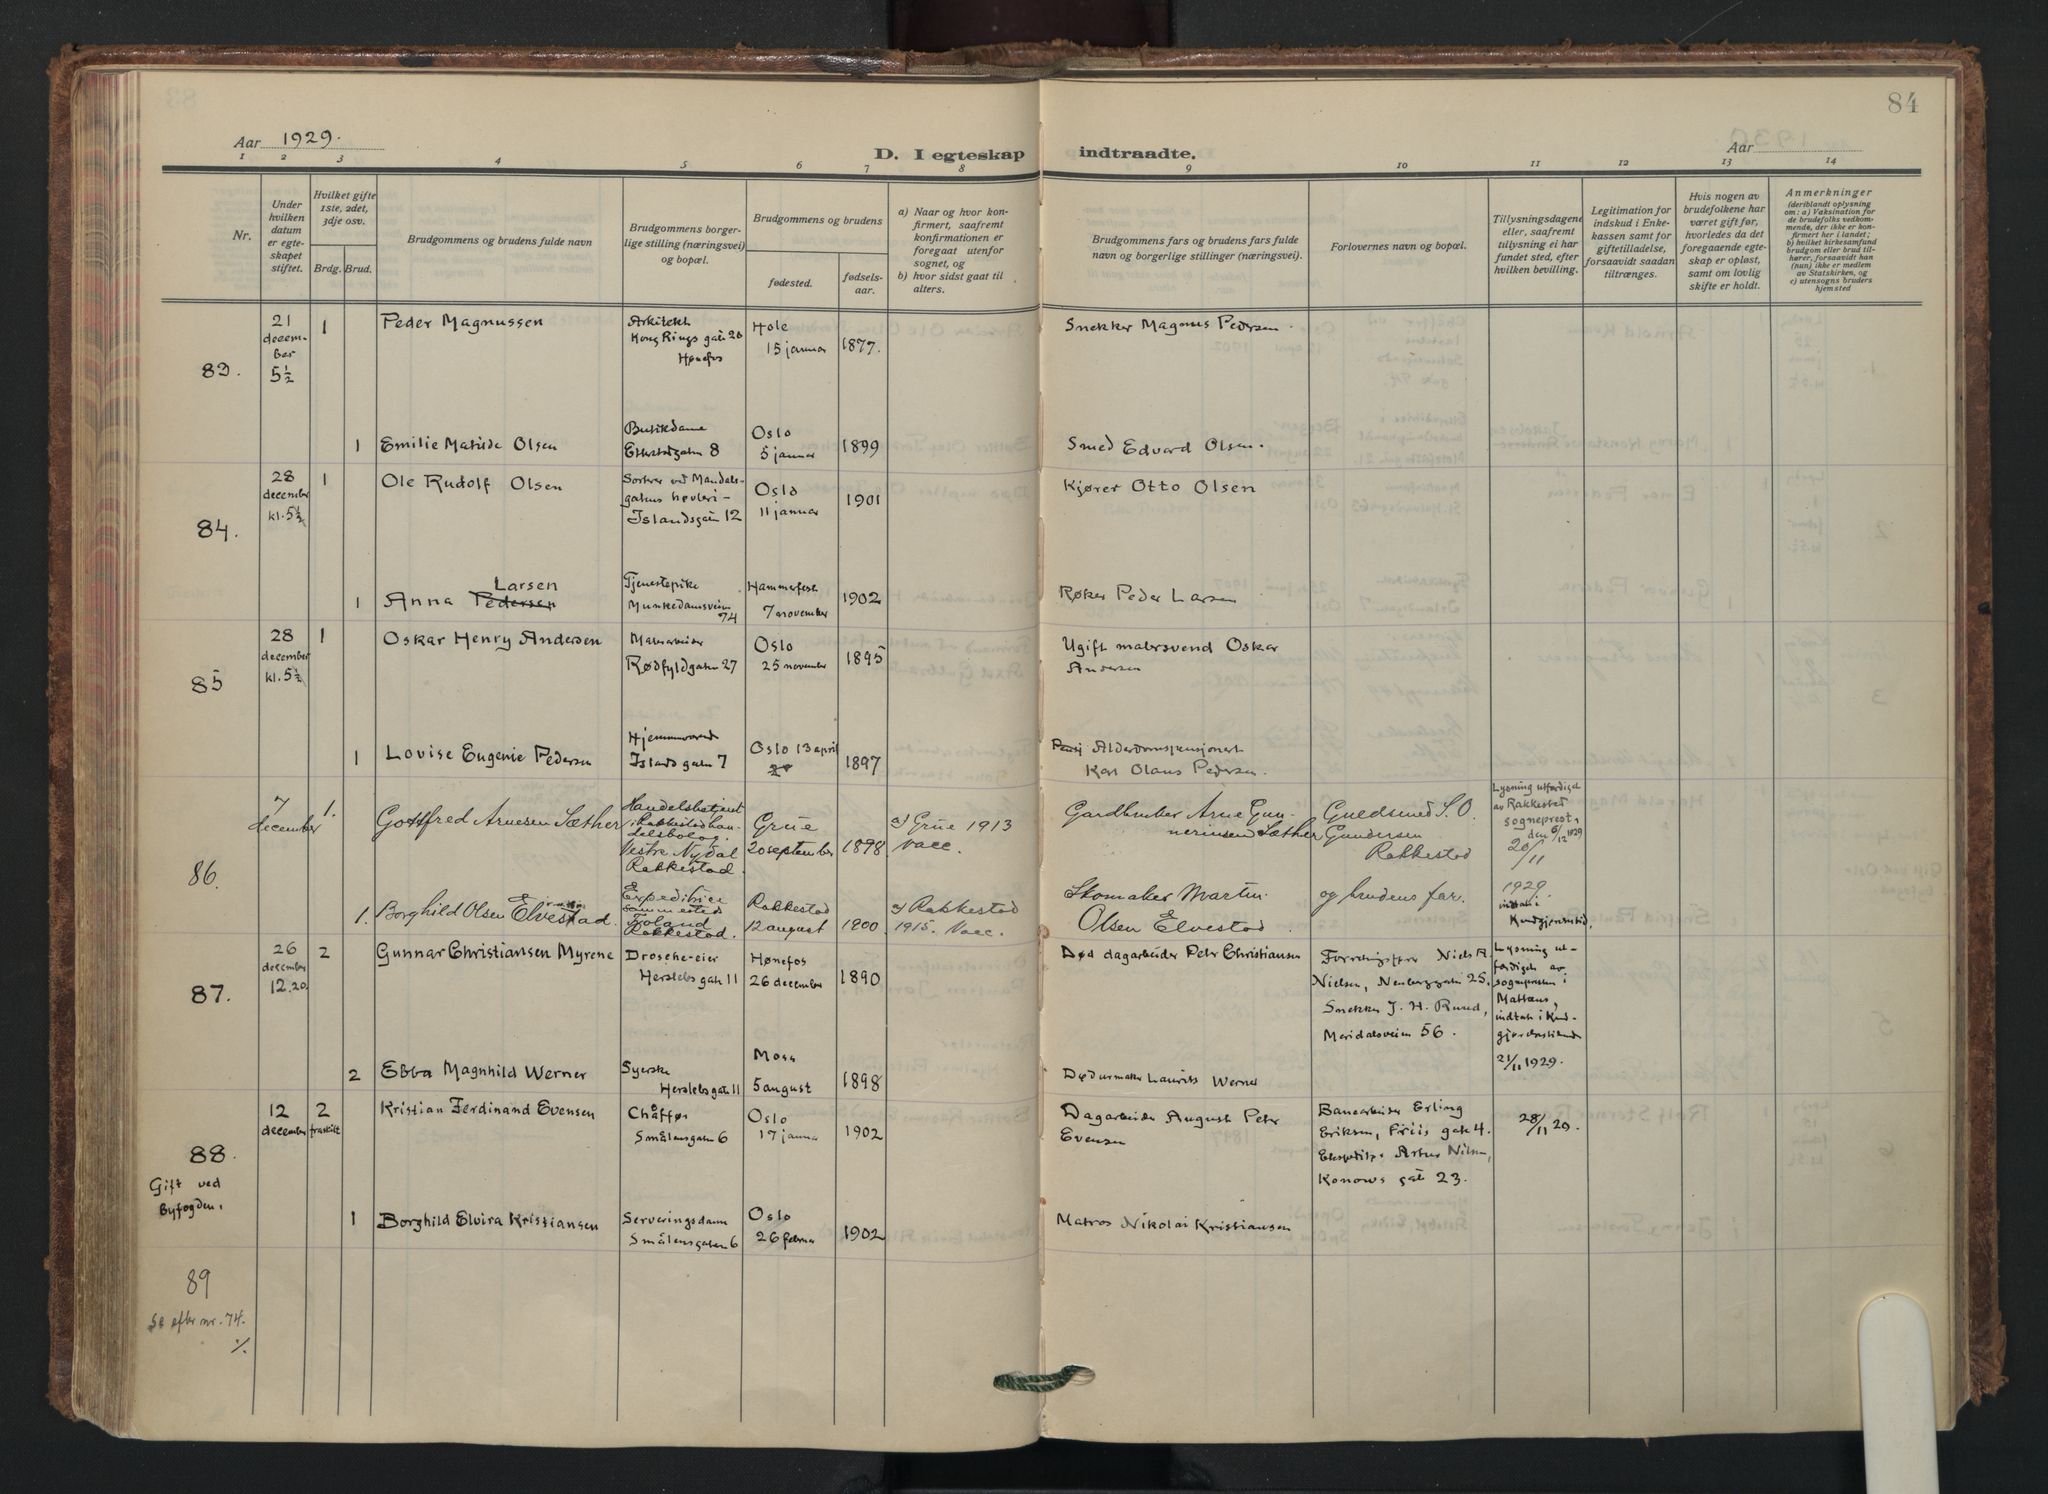 84
Aar 1929.
D. I egteskap indtraadte.
Aar
1 2 3 4 5 6 7 8 9 10 11 12 13 14
Nr.
Under hvilken datum er egteskapet stiftet.
Hvilket gifte 1ste, 2det, 3dje osv.
Brdg. Brud.
Brudgommens og brudens fulde navn
Brudgommens borgerlige stilling (næringsvei) og bopæl.
Brudgommens og brudens
fødested.
fødselsaar.
a) Naar og hvor konfirmert, saafremt konfirmationen er foregaat utenfor sognet, og
b) hvor sidst gaat til alters.
Brudgommens fars og brudens fars fulde navn og borgerlige stillinger (næringsvei).
Forlovernes navn og bopæl.
Tillysningsdagene eller, saafremt tillysning ei har fundet sted, efter hvilken bevilling.
Legitimation for indskud i Enkekassen samt for giftetilladelse, forsaavidt saadan tiltrænges.
Hvis nogen av brudefolkene har været gift før, hvorledes da det foregaaende egteskap er opløst, samt om lovlig skifte er holdt.
Anmerkninger
(deriblandt oplysning om: a) Vaksination for de brudefolks vedkommende, der ikke er konfirmert her i landet; b) hvilket kirkesamfund brudgom eller brud tilhører, forsaavidt han (hun) ikke er medlem av Statskirken, og c) utensogns bruders hjemsted
83.
21 december 5½
1
Peder Magnussen
Arkitekt Kong Rings gate 20 Hønefos
Hole 15 januar
1877.
Snekker Magnus Pedersen.
1
Emilie Matilde Olsen
Butikdame
8
Oslo 5 januar
1899
Smed Edvard Olsen.
84.
28 december kl. 5½
1
Ole Rudolf Olsen
Sorterer ved Mandalsgatens høvleri - Islandsgaten 12
Oslo 11 januar
1901
Kjører Otto Olsen
1
Anna Pedersen Larsen
Tjenestepike Munkedamsveien 74
Hammerfest 7 november
1902
Røker Peder Larsen
85
28 december kl. 5½
1
Oskar Henry Andersen
Malerarbeider Rødfyldgaten 27
Oslo 25 november
1895
Ugift malersvend Oskar Andersen
1
Lovise Eugenie Pedersen
Hjemmeværende Islandsgaten 7
Oslo 13 april
1897
Alderdomspensjonert
Karl Olaus Pedersen.
86.
7 december
1.
Gottfred Arnesen Sæther
Handelsbetjent i Rakkestad handelsbolag. Vestre Nydal Rakkestad.
Grue 20 september
1898
a) Grue 1913 vacc.
Gardbruker Arne Gunnerinsen Sæther
Guldsmed S. O. Gundersen Rakkestad
Lysning utfærdiget av Rakkestad sogneprest, den 6/12 1929
20/11 1929. indtat i Kundgjørelsestid.
1.
Borghild Olsen Elvestad.
Expeditrice sammesteds
Rakkestad.
Rakkestad 12 august
1900
a) Rakkestad 1915. Vacc.
Skomaker Martin Olsen Elvestad
og brudens far.
87.
26 december 12.20
2
Gunnar Christiansen Myrene
Drosche-eier Herslebs gate 11
Hønefos 26 december
1890
Død dagarbeider Petr Christiansen
Niels A. Nielsen, Neubergggaten 25. Snekker J. H. Ruud, Maridalsveien 56.
Lysning utfærdiget av sognepresten i Mattæus, indtatt i Kundgjørelsestidende 21/11 1929.
2
Ebba Magnhild Werner
Syerske Herslebs gate 11
Moss 5 august
1898
Død urmaker Lauritz Werner
88.
Gift ved Byfogden.
12 december
2 fraskilt
Kristian Ferdinand Evensen
Chåffør Smålensgaten 6
Oslo 17 januar
1902
Dagarbeider August Petr Evensen
Banearbeider Erling Eriksen, Friis gate 4. Artur Nilsen, Konows gate 23.
28/11 29.
1
Borghild Elvira Kristiansen
Serveringsdame Smålensgaten 6
Oslo 26 februar
1902
Matros Nikolai Kristiansen
89
Se efter nr. 74.